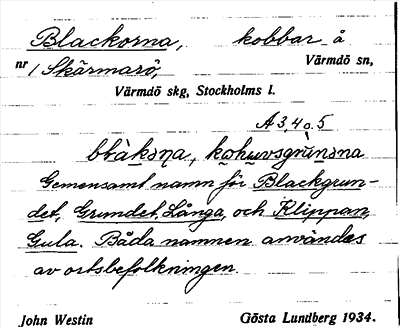 Blackorna, kobbar å
nr 1 Skärmarö, Värmdö sn,
Värmdö skg, Stockholms l.
A 3,4 o. 5
Gemensamt namn för Blackgrun-
det, Grundet, Långa, och Klippan,
Gula. Båda namnen användes
av ortsbefolkningen.
John Westin Gösta Lundberg 1934.